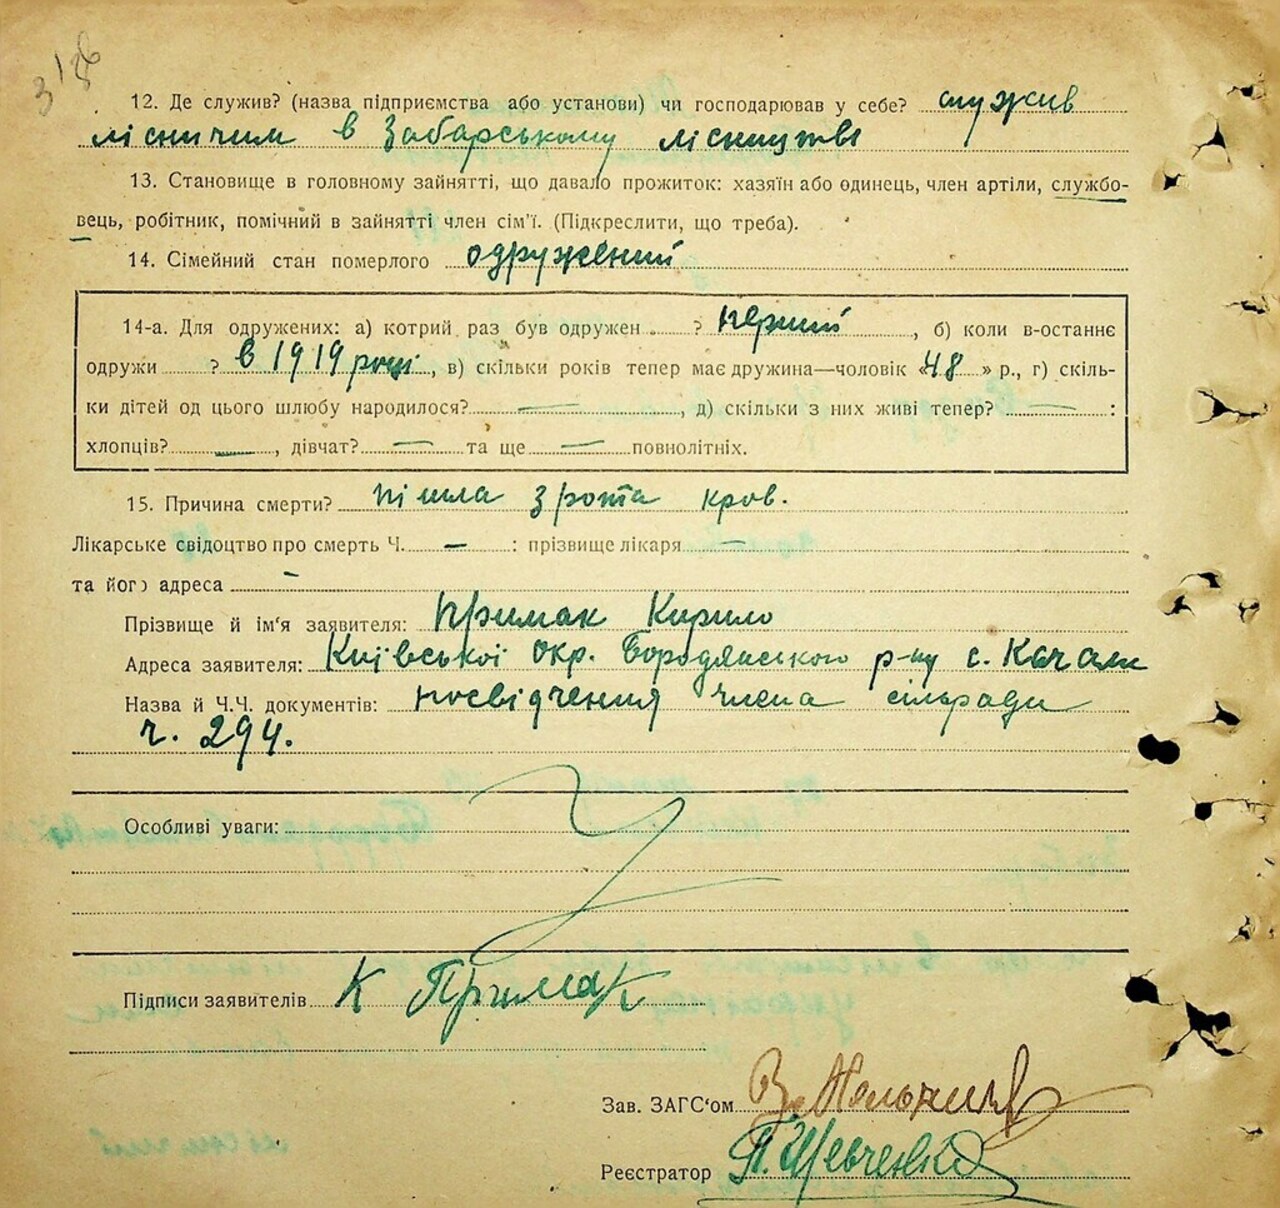 12. Де служив? (назва підприємства або установи) чи господарював у себе? служив
лісничим в Забарському лісництві
13. Становище в головному зайнятті, що давало прожиток: хазяїн або одинець, член артіли, службо-
вець, робітник, помічний в зайнятті член сім'ї. (Підкреслити, що треба).
14. Сімейний стан померлого одружений
14-а. Для одружених: а) котрий раз був одружен ? перший , б) коли в-останнє
одружи ? в 1919 році , в) скільки років тепер має дружина—чоловік «48» р., г) скіль-
ки дітей од цього шлюбу народилося? — , д) скільки з них живі тепер? — :
хлопців? — , дівчат? — та ще — повнолітніх.
15. Причина смерти? пішла з рота кров.
Лікарське свідоцтво про смерть Ч. — : прізвище лікаря —
та його адреса —
Прізвище й ім'я заявителя: Примак Кирило
Адреса заявителя: Київської окр. Бородянського р-ну с. Качали
Назва й Ч.Ч. документів: посвідчення члена сільради
ч. 294.
Особливі уваги:
Підписи заявителів К Примак
Зав. ЗАГС'ом
Реєстратор П. Шевченко